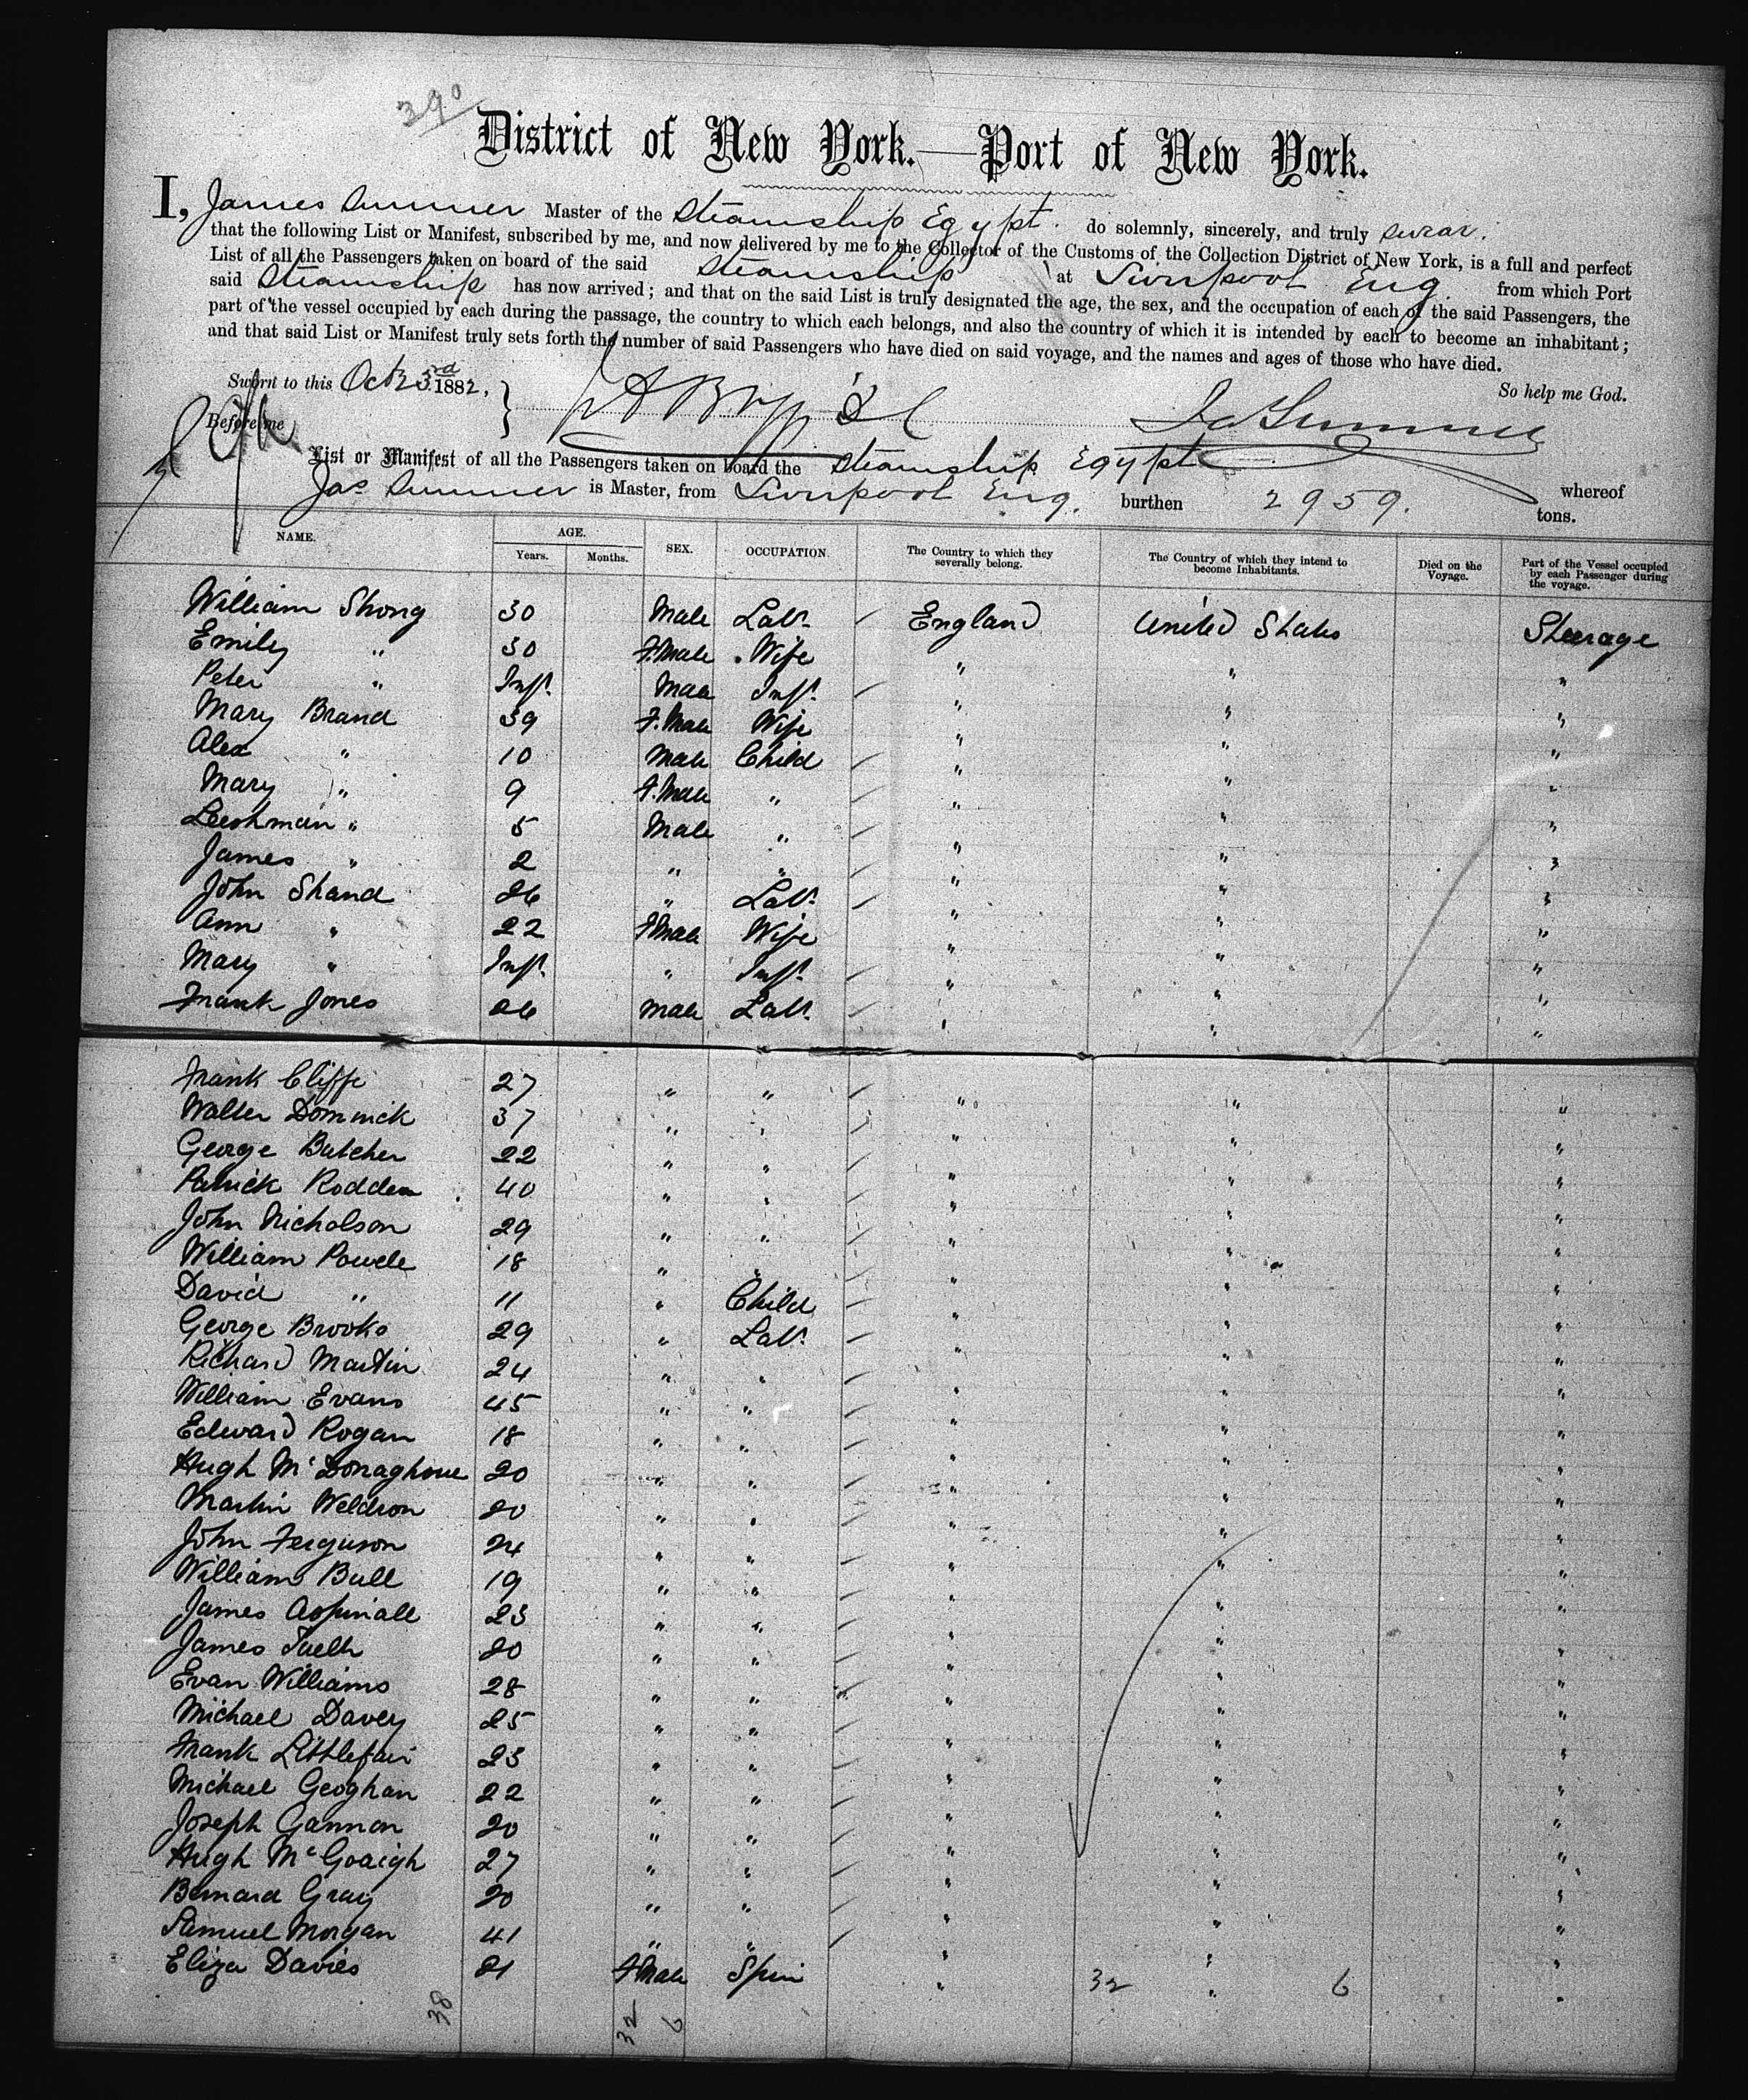 390
District of New York.—Port of New York.
I, James Sumner Master of the Steamship Egypt. do solemnly, sincerely, and truly swear.
that the following List or Manifest, subscribed by me, and now delivered by me to the Collector of the Customs of the Collection District of New York, is a full and perfect
List of all the Passengers taken on board of the said Steamship at Liverpool Eng. from which Port
said Steamship has now arrived; and that on the said List is truly designated the age, the sex, and the occupation of each of the said Passengers, the
part of the vessel occupied by each during the passage, the country to which each belongs, and also the country of which it is intended by each to become an inhabitant;
and that said List or Manifest truly sets forth the number of said Passengers who have died on said voyage, and the names and ages of those who have died.
So help me God.
Sworn to this Oct 3rd 1882,
Before me
Jas Sumner
List or Manifest of all the Passengers taken on board the Steamship Egypt whereof
Jas Sumner is Master, from Liverpool Eng. burthen 2959. tons.
NAME. AGE. Years. Months. SEX. OCCUPATION. The Country to which they severally belong. The Country of which they intend to become Inhabitants. Died on the Voyage. Part of the Vessel occupied by each Passenger during the voyage.
William Strong 30 Male Labr England United States Steerage
Emily " 30 F.Male Wife " " "
Peter " Inft. Male Inft. " " "
Mary Brand 39 F.Male Wife " " "
Alex " 10 Male Child " " "
Mary " 9 F.Male " " " "
Leeshman " 5 Male " " " "
James " 2 " " " " "
John Shand 26 " Labr " " "
Ann " 22 F.Male Wife " " "
Mary " Inft. " Inft. " " "
Frank Jones 26 Male Labr " " "
Frank Cliffe 27 " " " " "
Walter Dominick 37 " " " " "
George Butcher 22 " " " " "
Patrick Rodden 40 " " " " "
John Nicholson 29 " " " " "
William Powell 18 " " " " "
David " 11 " Child " " "
George Brooks 29 " Labr " " "
Richard Martin 24 " " " " "
William Evans 45 " " " " "
Edward Rogan 18 " " " " "
Hugh McDonaghue 20 " " " " "
Martin Weldron 20 " " " " "
John Ferguson 24 " " " " "
William Bull 19 " " " " "
James Aspinall 23 " " " " "
James 20 " " " " "
Evan Williams 28 " " " " "
Michael Davey 25 " " " " "
Frank Littlefair 23 " " " " "
Michael Geoghan 22 " " " " "
Joseph Gannon 20 " " " " "
Hugh McGoaigh 27 " " " " "
Bernard Gray 20 " " " " "
Samuel Morgan 41 " " " " "
Eliza Davies 21 F.Male Spin " " "
32 6
38 32 6